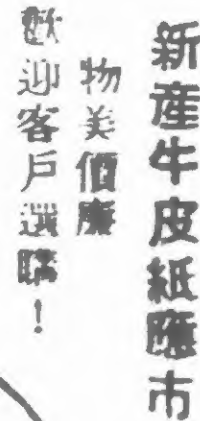 新産牛皮紙應市
物美價廉
歡迎客戶選購！